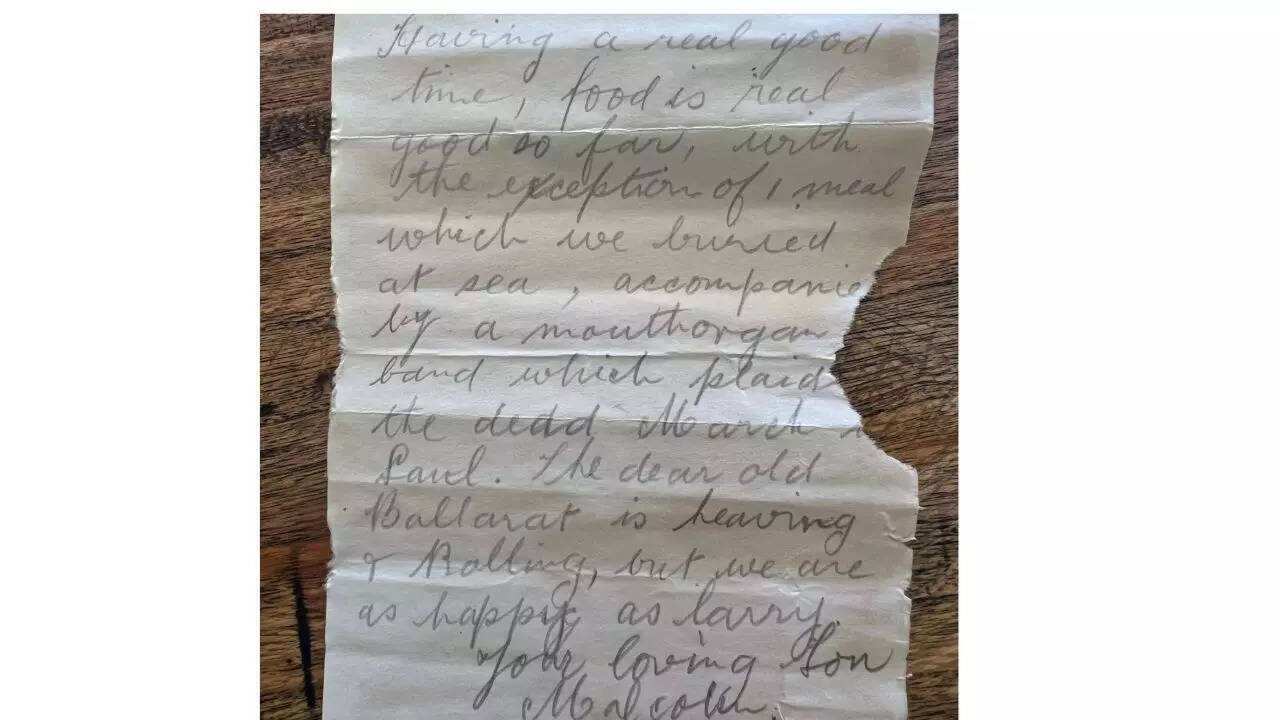 Having a real good
time, food is real
good so far, with
the exception of 1 meal
which we buried
at sea, accompanie
by a mouthorgan
band which plaid
the dead March
Saul. The dear old
Ballarat is heaving
& Rolling, but we are
as happy as larry.
Your loving Son
Malcolm.